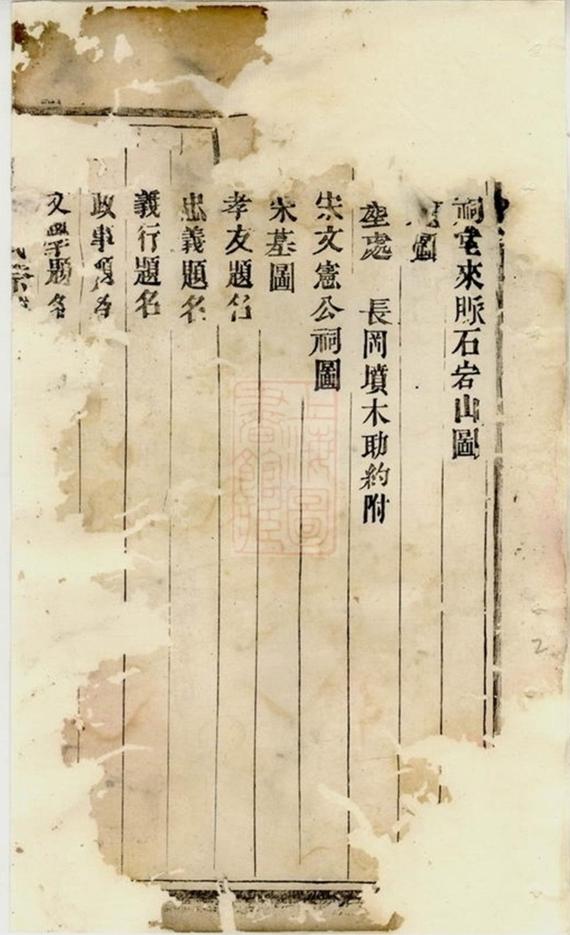 祠堂來脈石岩山圖
圖
塋處　長岡墳木助約附
宋文憲公祠圖
宋墓圖
孝友題名
忠義題名
義行題名
政事題名
文學題名